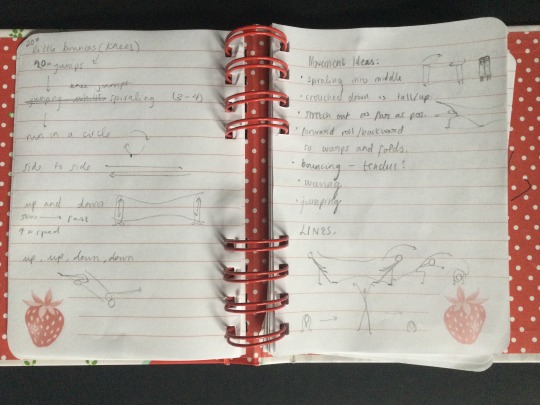 20*
little bounces (knees)
20* jumps
knee jumps
jumping whilst spiraling (3-4)
run in a circle
side to side
up and down
slow → fast
↑ = speed
up, up, down, down
Movement Ideas:
• Spiraling into middle
• crouched down vs tall/up
• stretch out as far as pos.
• forward roll/backward
so warps and folds.
• bouncing -
• waving
• jumping
LINES.